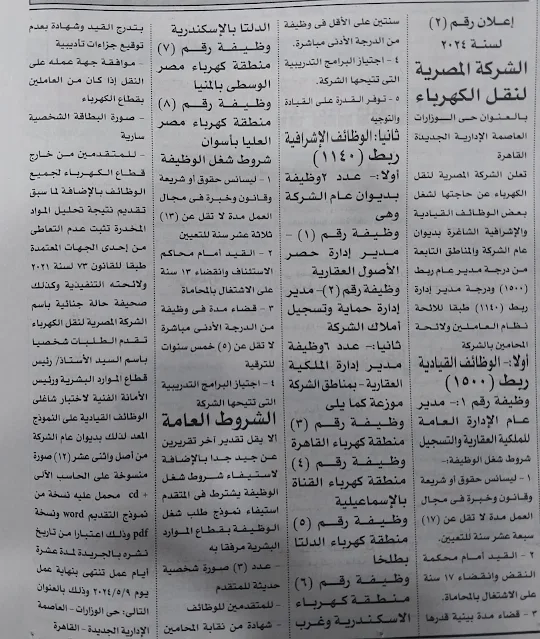 إعلان رقم (٢)
لسنة ٢٠٢٤
الشركة المصرية
لنقل الكهرباء
بالعنوان حى الوزارات
العاصمة الإدارية الجديدة
القاهرة
تعلن الشركة المصرية لنقل
الكهرباء عن حاجتها لشغل
بعض الوظائف القيادية
والإشرافية الشاغرة بديوان
عام الشركة والمناطق التابعة
من درجة مدير عام ربط
(١٥٠٠) ودرجة مدير إدارة
ربط (١١٤٠) طبقا للائحة
نظام العاملين ولائحة
المحامين بالشركة
أولا:- الوظائف القيادية
ربط (١٥٠٠)
وظيفة رقم ١:- مدير
عام الإدارة العامة
للملكية العقارية والتسجيل
شروط شغل الوظيفة:-
١ - ليسانس حقوق أو شريعة
وقانون وخبرة فى مجال
العمل مدة لا تقل عن (١٧)
سبعة عشر سنة للتعيين.
٢ - القيد أمام محكمة
النقض وانقضاء ١٧ سنة
على الاشتغال بالمحاماة.
٣ - قضاء مدة بينية قدرها
سنتين على الأقل فى وظيفة
من الدرجة الأدنى مباشرة.
٤ - اجتياز البرامج التدريبية
التى تتيحها الشركة.
٥ - توفر القدرة على القيادة
والتوجيه
ثانيا: الوظائف الإشرافية
ربط (١١٤٠)
أولا:- عدد ٢وظيفة
بديوان عام الشركة
وهى
وظيفة رقم (١) -
مدير إدارة حصر
الأصول العقارية
وظيفة رقم (٢)- مدير
إدارة حماية وتسجيل
أملاك الشركة
ثانيا:- عدد ٦وظيفة
مدير إدارة الملكية
العقارية - بمناطق الشركة
موزعة كما يلى
وظيفة رقم (٣)
منطقة كهرباء القاهرة
وظيفة رقم (٤)
منطقة كهرباء القناة
بالإسماعيلية
وظيفة رقم (٥)
منطقة كهرباء الدلتا
بطلخا
وظيفة رقم (٦)
منطقة كهرباء
الاسكندرية وغرب
الدلتا بالإسكندرية
وظيفة رقم (٧)
منطقة كهرباء مصر
الوسطى بالمنيا
وظيفة رقم (٨)
منطقة كهرباء مصر
العليا بأسوان
شروط شغل الوظيفة
١ - ليسانس حقوق أو شريعة
وقانون وخبرة فى مجال
العمل مدة لا تقل عن (١٣)
ثلاثة عشر سنة للتعيين
٢ - القيد أمام محاكم
الاستئناف وانقضاء ١٣ سنة
على الاشتغال بالمحاماة
٣ - قضاء مدة فى وظيفة
من الدرجة الأدنى مباشرة
لا تقل عن (٥) خمس سنوات
للترقية
٤ - اجتياز البرامج التدريبية
التى تتيحها الشركة
الشروط العامة
الا يقل تقدير اخر تقريرين
عن جيد جدا بالإضافة
لاستيفاء شروط شغل
الوظيفة يشترط فى المتقدم
استيفاء نموذج طلب شغل
الوظيفة بقطاع الموارد
البشرية مرفقا به
- عدد (٣) صورة شخصية
حديثة للمتقدم
- للمتقدمين للوظائف
- شهادة من نقابة المحامين
بتدرج القيد وشهادة بعدم
توقيع جزاءات تأديبية
- موافقة جهة عمله على
النقل إذا كان من العاملين
بقطاع الكهرباء
- صورة البطاقة الشخصية
سارية
- للمتقدمين من خارج
قطاع الكهرباء لجميع
الوظائف بالإضافة لما سبق
تقديم نتيجة تحليل المواد
المخدرة تثبت عدم التعاطى
من إحدى الجهات المعتمدة
طبقا للقانون ٧٣ لسنة ٢٠٢١
ولائحته التنفيذية وكذلك
صحيفة حالة جنائية باسم
الشركة المصرية لنقل الكهرباء
تقدم الطلبات شخصيا
باسم السيد الأستاذ/ رئيس
قطاع الموارد البشرية ورئيس
الأمانة الفنية لاختيار شاغلى
الوظائف القيادية على النموذج
المعد لذلك بديوان عام الشركة
من أصل واثنى عشر (١٢) صورة
منسوخة على الحاسب الآلى
+ cd محمل عليه نسخة من
نموذج التقديم word ونسخة
pdf وذلك اعتبارا من تاريخ
نشره بالجريدة لمدة عشرة
أيام عمل تنتهى بنهاية عمل
يوم ٢٠٢٤/٥/٩ وذلك بالعنوان
التالى: حى الوزارات - العاصمة
الإدارية الجديدة - القاهرة